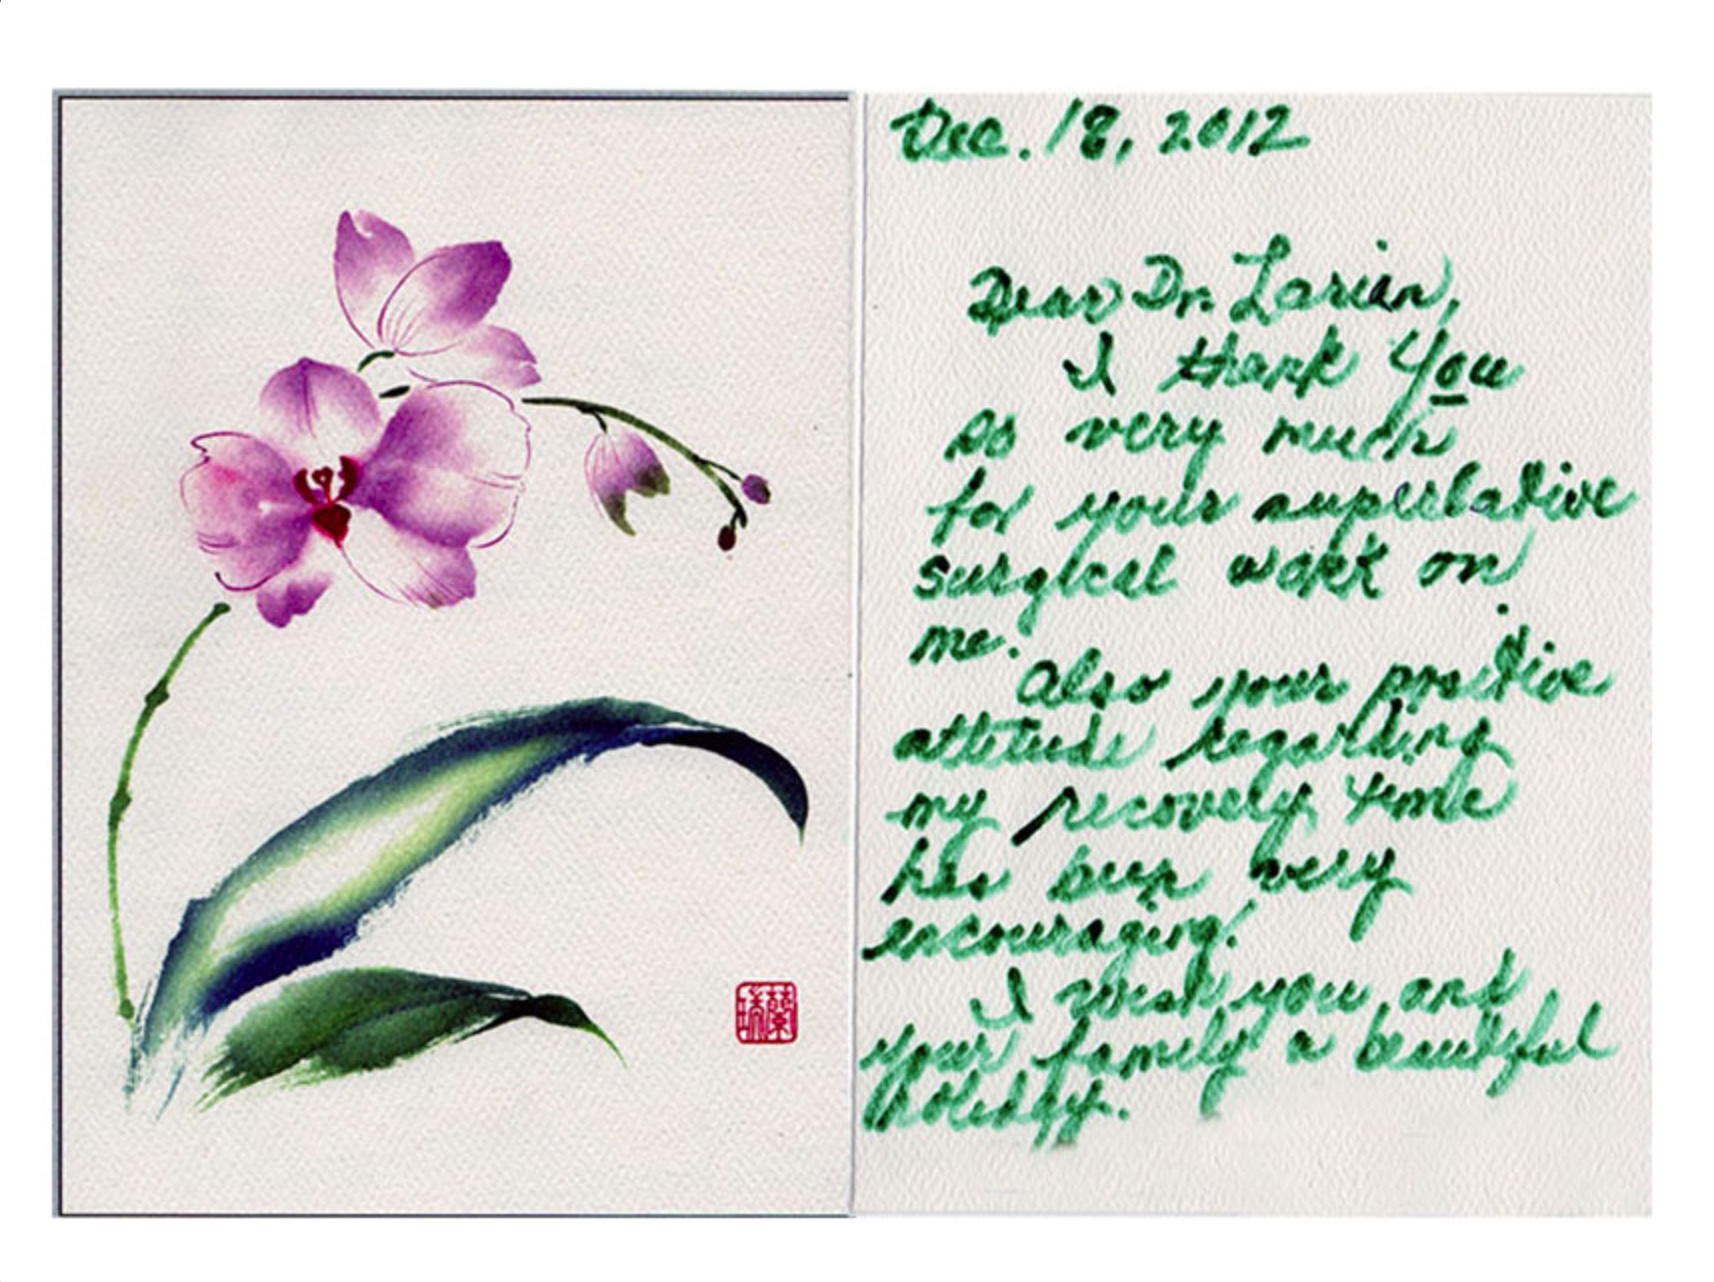 Dec. 18, 2012
Dear Dr. Larian,
I thank you
so very much
for your superlative
surgical work on
me.
Also your positive
attitude regarding
my recovery time
has been very
encouraging.
I wish you and
your family a beautiful
holiday.